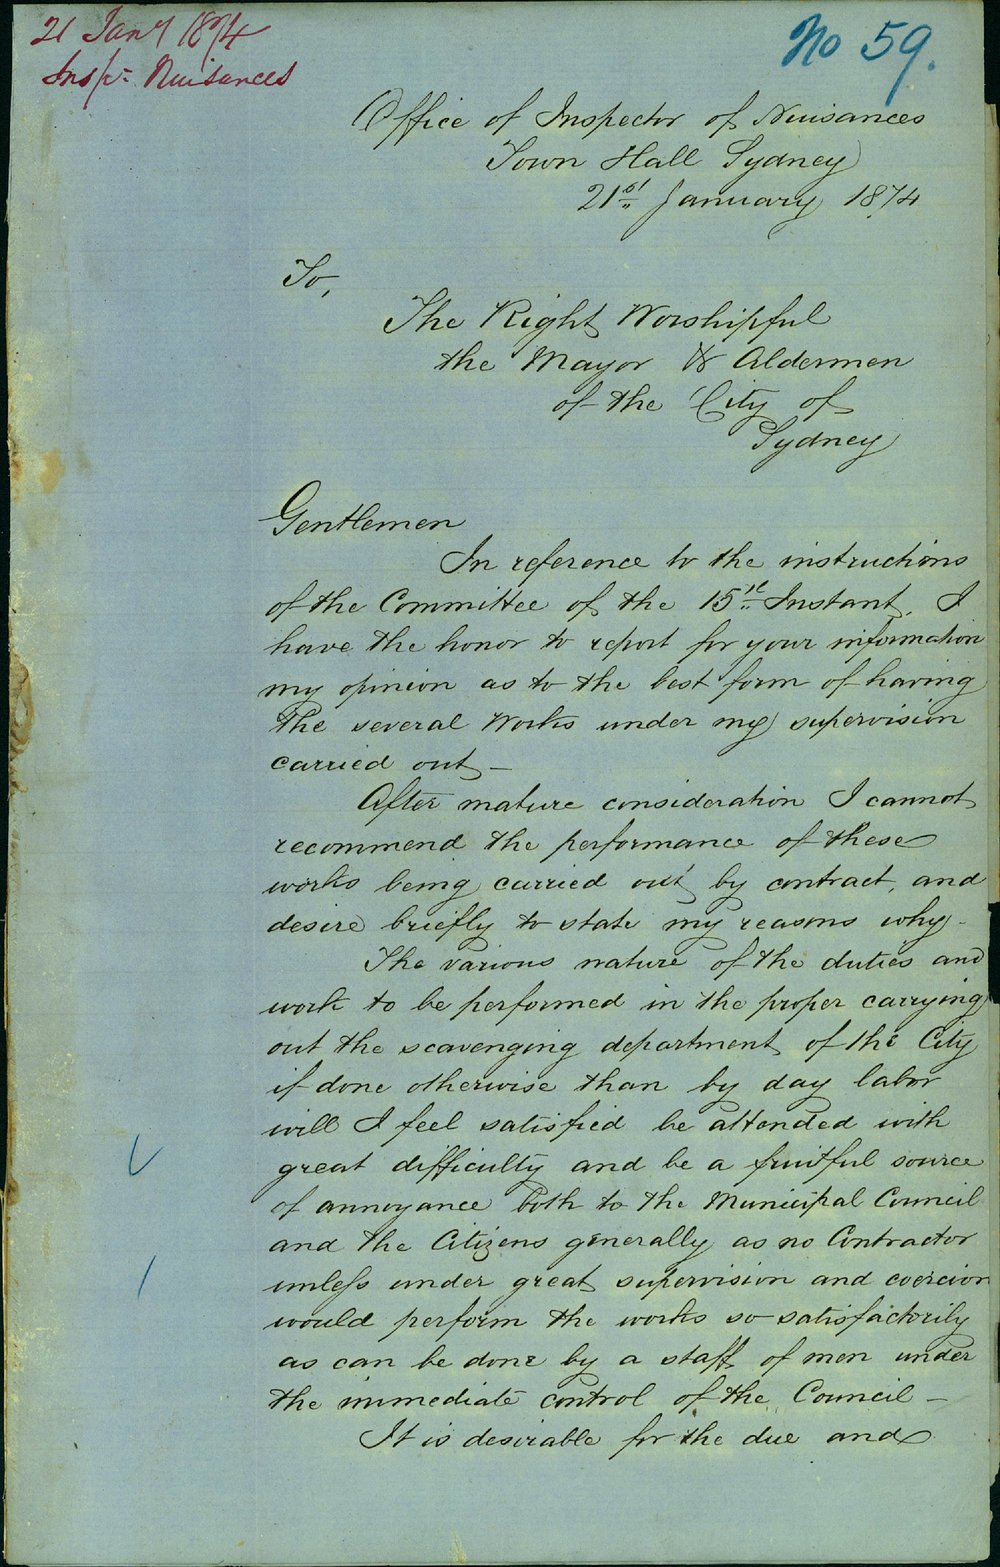 21 Jany 1874
Inspr Nuisances
No 59.
Office of Inspector of Nuisances
Town Hall Sydney
21st January 1874
To,
The Right Worshipful
the Mayor & Aldermen
of the City of
Sydney
Gentlemen
In reference to the instructions
of the Committee of the 15th Instant, I
have the honor to report for your information
my opinion as to the best form of having
the several Works under my supervision
carried out –
After mature consideration I cannot
recommend the performance of these
works being carried out by contract, and
desire briefly to state my reasons why –
The various nature of the duties and
work to be performed in the proper carrying
out the scavenging department of the City
if done otherwise than by day labor
will I feel satisfied be attended with
great difficulty and be a fruitful source
of annoyance both to the Municipal Council
and the Citizens generally as no Contractor
unless under great supervision and coercion
would perform the works so satisfactorily
as can be done by a staff of men under
the immediate control of the Council –
It is desirable for the due and